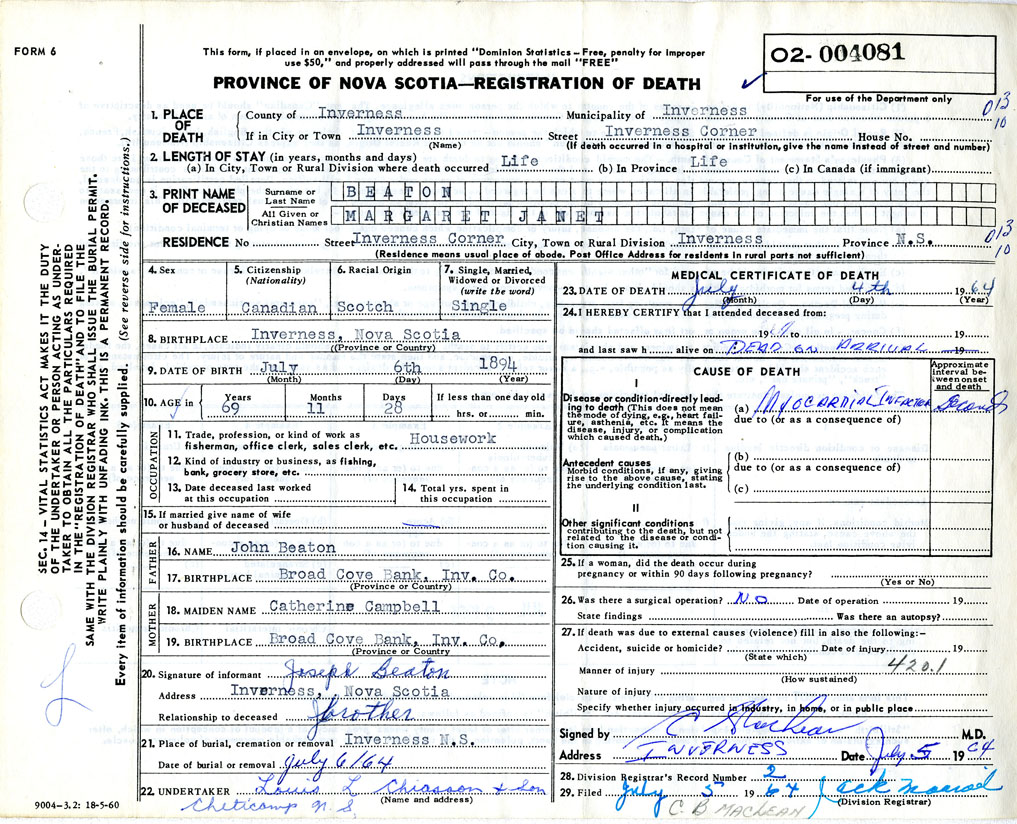 FORM 6
This form, if placed in an envelope, on which is printed "Dominion Statistics – Free, penalty for improper
use $50," and properly addressed will pass through the mail "FREE"
PROVINCE OF NOVA SCOTIA—REGISTRATION OF DEATH
02- 004081
For use of the Department only
013
10
1. PLACE OF DEATH
County of Inverness Municipality of Inverness
If in City or Town Inverness Street Inverness Corner House No.
(Name) (If death occurred in a hospital or institution, give the name instead of street and number)
2. LENGTH OF STAY (in years, months and days)
(a) In City, Town or Rural Division where death occurred Life (b) In Province Life (c) In Canada (if immigrant)
3. PRINT NAME OF DECEASED
Surname or Last Name BEATON
All Given or Christian Names MARGARET JANET
013
10
RESIDENCE No Street Inverness Corner City, Town or Rural Division Inverness Province N.S.
(Residence means usual place of abode. Post Office Address for residents in rural parts not sufficient)
4. Sex
Female
5. Citizenship
(Nationality)
Canadian
6. Racial Origin
Scotch
7. Single, Married,
Widowed or Divorced
(write the word)
Single
8. BIRTHPLACE Inverness, Nova Scotia
(Province or Country)
9. DATE OF BIRTH July 6th 1894
(Month) (Day) (Year)
10. AGE in
Years Months Days If less than one day old
69 11 28 hrs. or min.
OCCUPATION
11. Trade, profession, or kind of work as
fisherman, office clerk, sales clerk, etc. Housework
12. Kind of industry or business, as fishing,
bank, grocery store, etc.
13. Date deceased last worked
at this occupation
14. Total yrs. spent in
this occupation
15. If married give name of wife
or husband of deceased
FATHER
16. NAME John Beaton
17. BIRTHPLACE Broad Cove Bank, Inv. Co.
(Province or Country)
MOTHER
18. MAIDEN NAME Catherine Campbell
19. BIRTHPLACE Broad Cove Bank, Inv. Co,
(Province or Country)
20. Signature of informant Joseph Beaton
Address Inverness, Nova Scotia
Relationship to deceased brother
21. Place of burial, cremation or removal Inverness N.S.
Date of burial or removal July 6/64
22. UNDERTAKER Louis L Chiasson & Son
(Name and address)
Cheticamp N.S
9004–3.2: 18-5-60
MEDICAL CERTIFICATE OF DEATH
23. DATE OF DEATH July 4th 1964
(Month) (Day) (Year)
24. I HEREBY CERTIFY that I attended deceased from:
19 19
and last saw h alive on DEAD ON ARRIVAL 19
CAUSE OF DEATH
Approximate
interval be-
tween onset
and death
I
Disease or condition directly lead-
ing to death (This does not mean
the mode of dying, e.g., heart fail-
ure, asthenia, etc. It means the
disease, injury, or complication
which caused death.)
(a) MYOCARDIAL
due to (or as a consequence of)
Antecedent causes
Morbid conditions, if any, giving
rise to the above cause, stating
the underlying condition last.
(b)
due to (or as a consequence of)
(c)
II
Other significant conditions
contributing to the death, but not
related to the disease or condi-
tion causing it.
25. If a woman, did the death occur during
pregnancy or within 90 days following pregnancy?
(Yes or No)
26. Was there a surgical operation? NO Date of operation 19
State findings Was there an autopsy?
27. If death was due to external causes (violence) fill in also the following:–
Accident, suicide or homicide? Date of injury 19
(State which)
420.1
Manner of injury
(How sustained)
Nature of injury
Specify whether injury occurred in industry, in home, or in public place
Signed by C MacLean M.D.
Address INVERNESS Date July 5 1964
28. Division Registrar's Record Number 2
29. Filed July 5 1964
(Division Registrar)
C B MACLEAN
SEC. 14 – VITAL STATISTICS ACT MAKES IT THE DUTY
OF THE UNDERTAKER OR PERSON ACTING AS UNDER-
TAKER TO OBTAIN ALL THE PARTICULARS REQUIRED
IN THE "REGISTRATION OF DEATH" AND TO FILE THE
SAME WITH THE DIVISION REGISTRAR WHO SHALL ISSUE THE BURIAL PERMIT.
WRITE PLAINLY WITH UNFADING INK. THIS IS A PERMANENT RECORD.
Every item of information should be carefully supplied. (See reverse side for instructions.)